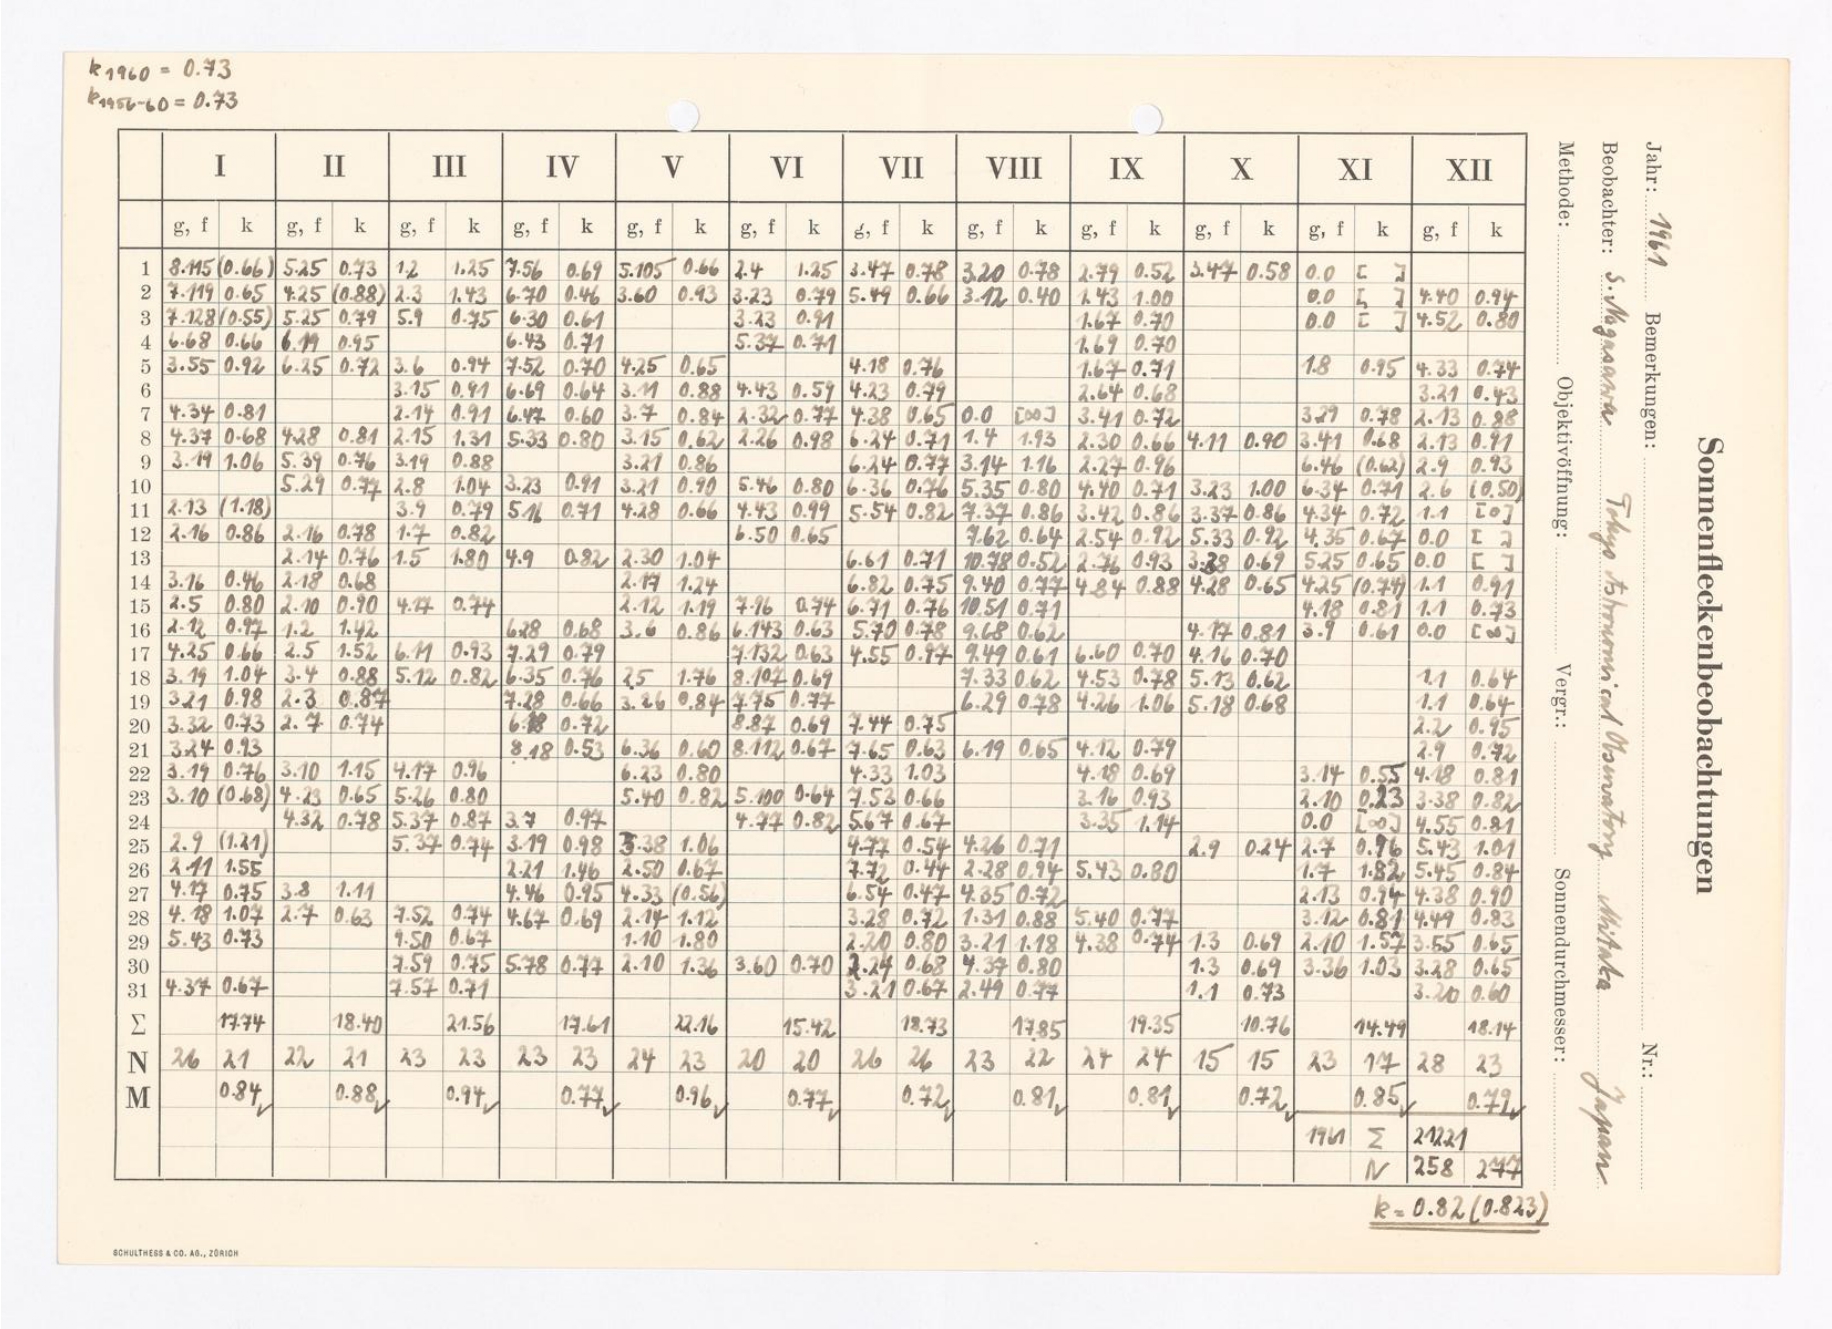 k1960 = 0.73
k1956-60 = 0.73
I II III IV V VI VII VIII IX X XI XII
g, f k g, f k g, f k g, f k g, f k g, f k g, f k g, f k g, f k g, f k g, f k g, f k
1 8.115 (0.66) 5.25 0.73 1.2 1.25 7.56 0.69 5.105 0.66 2.4 1.25 3.47 0.78 3.20 0.78 2.79 0.52 3.47 0.58 0.0 [ ]
2 7.119 0.65 4.25 (0.88) 2.3 1.43 6.70 0.46 3.60 0.93 3.23 0.79 5.49 0.66 3.12 0.40 1.43 1.00 0.0 [ ] 4.40 0.94
3 7.128 (0.55) 5.25 0.79 5.9 0.75 6.30 0.61 3.23 0.91 1.67 0.70 0.0 [ ] 4.52 0.80
4 6.68 0.66 6.19 0.95 6.43 0.71 5.37 0.71 1.69 0.70
5 3.55 0.92 6.25 0.72 3.6 0.94 7.52 0.70 4.25 0.65 4.18 0.76 1.67 0.71 1.8 0.95 4.33 0.74
6 3.15 0.91 6.69 0.64 3.11 0.88 4.43 0.59 4.23 0.79 2.64 0.68 3.21 0.43
7 4.34 0.81 2.14 0.91 6.47 0.60 3.7 0.84 2.32 0.77 4.38 0.65 0.0 [∞] 3.41 0.72 3.29 0.78 2.13 0.88
8 4.37 0.68 4.28 0.81 2.15 1.31 5.33 0.80 3.15 0.62 2.26 0.98 6.24 0.71 1.4 1.93 2.30 0.66 4.11 0.90 3.41 0.68 2.13 0.91
9 3.19 1.06 5.39 0.76 3.19 0.88 3.21 0.86 6.24 0.77 3.14 1.16 2.27 0.96 6.46 (0.62) 2.9 0.93
10 5.29 0.77 2.8 1.04 3.23 0.91 3.21 0.90 5.46 0.80 6.36 0.76 5.35 0.80 4.40 0.71 3.23 1.00 6.34 0.71 2.6 (0.50)
11 2.13 (1.18) 3.9 0.79 5.16 0.71 4.28 0.66 4.43 0.99 5.54 0.82 7.37 0.86 3.42 0.86 3.37 0.86 4.34 0.72 1.1 [0]
12 2.16 0.86 2.16 0.78 1.7 0.82 6.50 0.65 7.62 0.64 2.54 0.92 5.33 0.92 4.35 0.67 0.0 [ ]
13 2.14 0.76 1.5 1.80 4.9 0.82 2.30 1.04 6.61 0.71 10.78 0.52 2.76 0.93 3.28 0.69 5.25 0.65 0.0 [ ]
14 3.16 0.46 2.18 0.68 2.17 1.24 6.82 0.75 9.40 0.77 4.84 0.88 4.28 0.65 4.25 (0.74) 1.1 0.91
15 2.5 0.80 2.10 0.90 4.17 0.74 2.12 1.19 7.96 0.74 6.71 0.76 10.51 0.71 4.18 0.81 1.1 0.73
16 2.12 0.97 1.2 1.42 6.28 0.68 3.6 0.86 6.143 0.63 5.70 0.78 9.68 0.62 4.17 0.81 3.9 0.61 0.0 [∞]
17 4.25 0.66 2.5 1.52 6.11 0.93 7.29 0.79 7.132 0.63 4.55 0.97 9.49 0.61 6.60 0.70 4.16 0.70
18 3.19 1.04 3.4 0.88 5.12 0.82 6.35 0.76 2.5 1.76 8.107 0.69 7.33 0.62 4.53 0.78 5.13 0.62 1.1 0.64
19 3.21 0.98 2.3 0.87 7.28 0.66 3.26 0.84 7.75 0.77 6.29 0.78 4.26 1.06 5.18 0.68 1.1 0.64
20 3.32 0.73 2.7 0.74 6.18 0.72 8.87 0.69 7.44 0.75 2.2 0.95
21 3.24 0.93 8.18 0.53 6.36 0.60 8.112 0.67 7.65 0.63 6.19 0.65 4.12 0.79 2.9 0.72
22 3.19 0.76 3.10 1.15 4.17 0.96 6.23 0.80 4.33 1.03 4.18 0.69 3.14 0.55 4.18 0.81
23 3.10 (0.68) 4.23 0.65 5.26 0.80 5.40 0.82 5.100 0.64 7.53 0.66 3.16 0.93 2.10 0.23 3.38 0.82
24 4.32 0.78 5.37 0.87 3.7 0.97 4.77 0.82 5.67 0.67 3.35 1.14 0.0 [∞] 4.55 0.81
25 2.9 (1.21) 5.37 0.74 3.19 0.98 3.38 1.06 4.77 0.54 4.26 0.71 2.9 0.24 2.7 0.96 5.43 1.01
26 2.11 1.55 2.21 1.46 2.50 0.67 7.72 0.44 2.28 0.94 5.43 0.80 1.7 1.82 5.45 0.84
27 4.17 0.75 3.8 1.11 4.46 0.95 4.33 (0.56) 6.54 0.47 4.35 0.72 2.13 0.94 4.38 0.90
28 4.18 1.07 2.7 0.63 7.52 0.74 4.67 0.69 2.14 1.12 3.28 0.72 1.31 0.88 5.40 0.77 3.12 0.81 4.49 0.83
29 5.43 0.73 9.50 0.67 1.10 1.80 2.20 0.80 3.21 1.18 4.38 0.74 1.3 0.69 2.10 1.57 3.55 0.65
30 7.59 0.75 5.78 0.77 2.10 1.36 3.60 0.70 2.24 0.68 4.37 0.80 1.3 0.69 3.36 1.03 3.28 0.65
31 4.37 0.67 7.57 0.71 3.21 0.67 2.49 0.77 1.1 0.73 3.20 0.60
Σ 17.74 18.40 21.56 17.61 22.16 15.42 18.73 17.85 19.35 10.76 14.49 18.14
N 26 21 22 21 23 23 23 23 24 23 20 20 26 26 23 22 24 24 15 15 23 17 28 23
M 0.84 0.88 0.94 0.77 0.96 0.77 0.72 0.81 0.81 0.72 0.85 0.79
1961 Σ 21221
N 258 277
k = 0.82 (0.823)
SCHULTHESS & CO. AG., ZÜRICH
Sonnenfleckenbeobachtungen
Jahr: 1961 Bemerkungen: Nr.:
Beobachter: S. Nagasawa Tokyo Astronomical Observatory Mitaka Japan
Methode: Objektivöffnung: Vergr.: Sonnendurchmesser: